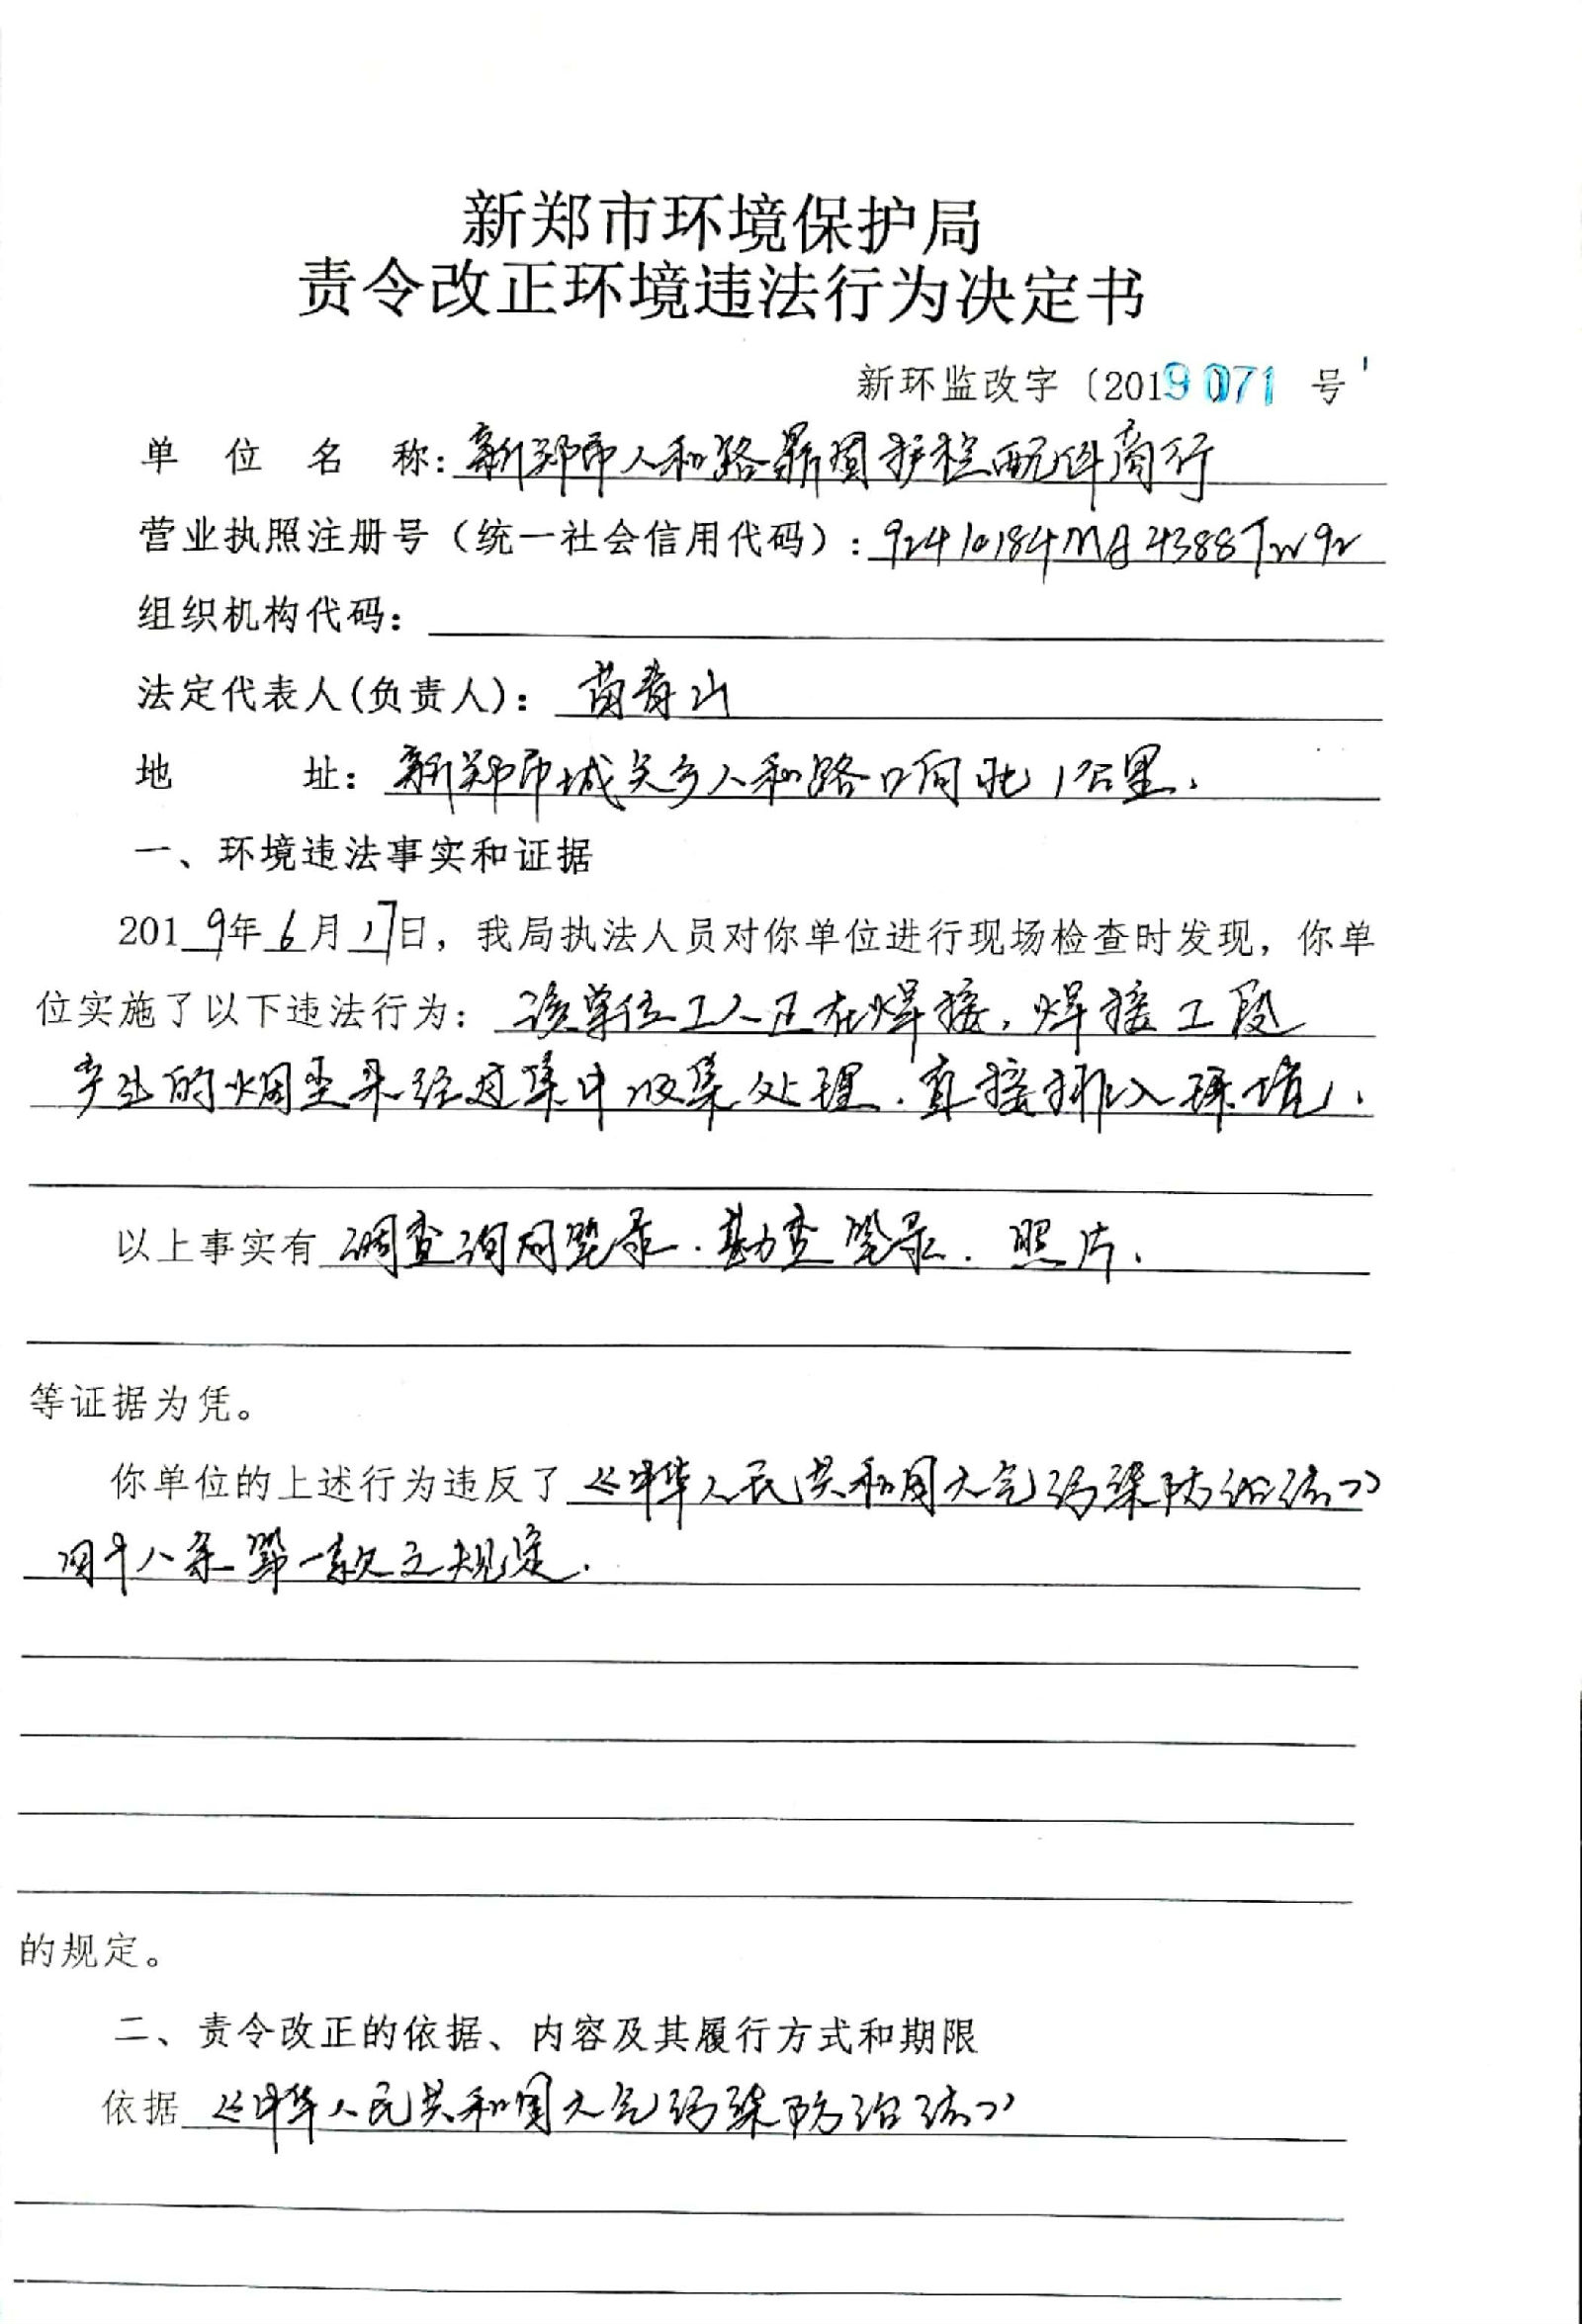 新郑市环境保护局
责令改正环境违法行为决定书
新环监改字〔2019〕071 号
单位名称：新郑市人和路鼎固护栏配件商行
营业执照注册号（统一社会信用代码）：92410184MA4388TW92
组织机构代码：
法定代表人(负责人)：苗青山
地址：新郑市城关乡人和路口向北1公里.
一、环境违法事实和证据
2019年6月17日，我局执法人员对你单位进行现场检查时发现，你单
位实施了以下违法行为：该单位工人正在焊接，焊接工段
产生的烟尘未经过集中收集处理.直接排入环境.
以上事实有调查询问笔录.勘查笔录.照片.
等证据为凭。
你单位的上述行为违反了《中华人民共和国大气污染防治法》
四十八条第一款之规定.
的规定。
二、责令改正的依据、内容及其履行方式和期限
依据《中华人民共和国大气污染防治法》